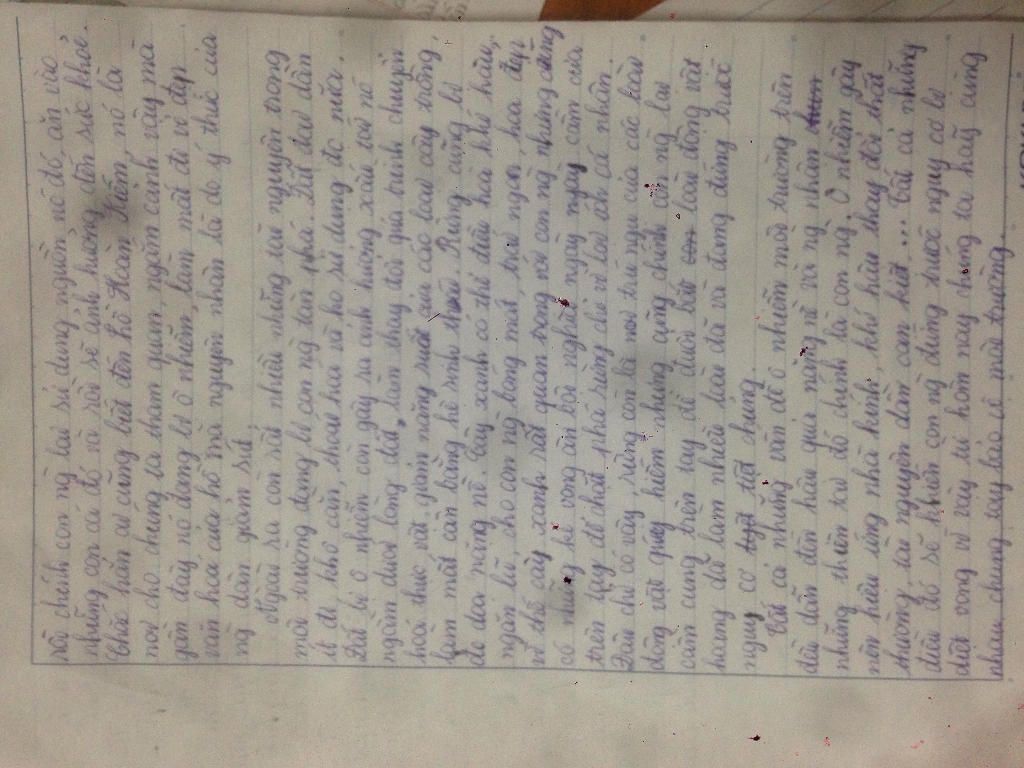 nồi chính con ng lại sử dụng nguồn nc đó, ăn vào
những con cá đó và rồi sẽ ảnh hưởng đến sức khoẻ.
Chắc hẳn ai cũng biết đến hồ Hoàn Kiếm, nó là
nơi cho chúng ta tham quan, ngắm cảnh vậy mà
gần đây nó đang bị ô nhiễm, làm mất đi vẻ đẹp
văn hoá của hồ mà nguyên nhân là do ý thức của
ng dân giảm sút.
Ngoài ra còn rất nhiều những tài nguyên trong
môi trường đang bị con ng tàn phá. Đất đai dần
ít đi khô cằn, thoái hoá và họ sử dụng đc nữa.
Đất bị ô nhiễm còn gây ra ảnh hưởng xấu tới nc
ngầm dưới lòng đất, làm thay đổi quá trình chuyển
hoá thực vật, giảm năng suất của các loại cây trồng,
làm mất cân bằng hệ sinh thái. Rừng cũng bị
đe doạ nặng nề. Cây xanh có thể điều hoà khí hậu,
ngăn lũ, cho con ng bóng mát, trái ngon, hoa đẹp
vì thế cây xanh rất quan trọng với con ng nhưng cũng
có những kẻ vong ân bội nghĩa ngày ngày cầm cưa
trên tay để chặt phá rừng chỉ vì lợi ích cá nhân.
Đâu chỉ có vậy, rừng còn là nơi trú ngụ của các loài
động vật quý hiếm nhưng cũng chính con ng lại
cầm cung trên tay để đuổi bắt loài động vật
hoang dã làm nhiều loài đã và đang đứng trước
nguy cơ tiệt chủng.
Tất cả những vấn đề ô nhiễm môi trường trên
đều dẫn đến hậu quả nặng nề và ng nhận
những thiên tai đó chính là con ng. Ô nhiễm gây
nên hiệu ứng nhà kính, khí hậu thay đổi thất
thường, tài nguyên dần cạn kiệt... Tất cả những
điều đó sẽ khiến con ng đứng trước nguy cơ bị
diệt vong vì vậy từ hôm nay chúng ta hãy cùng
nhau chung tay bảo vệ môi trường.